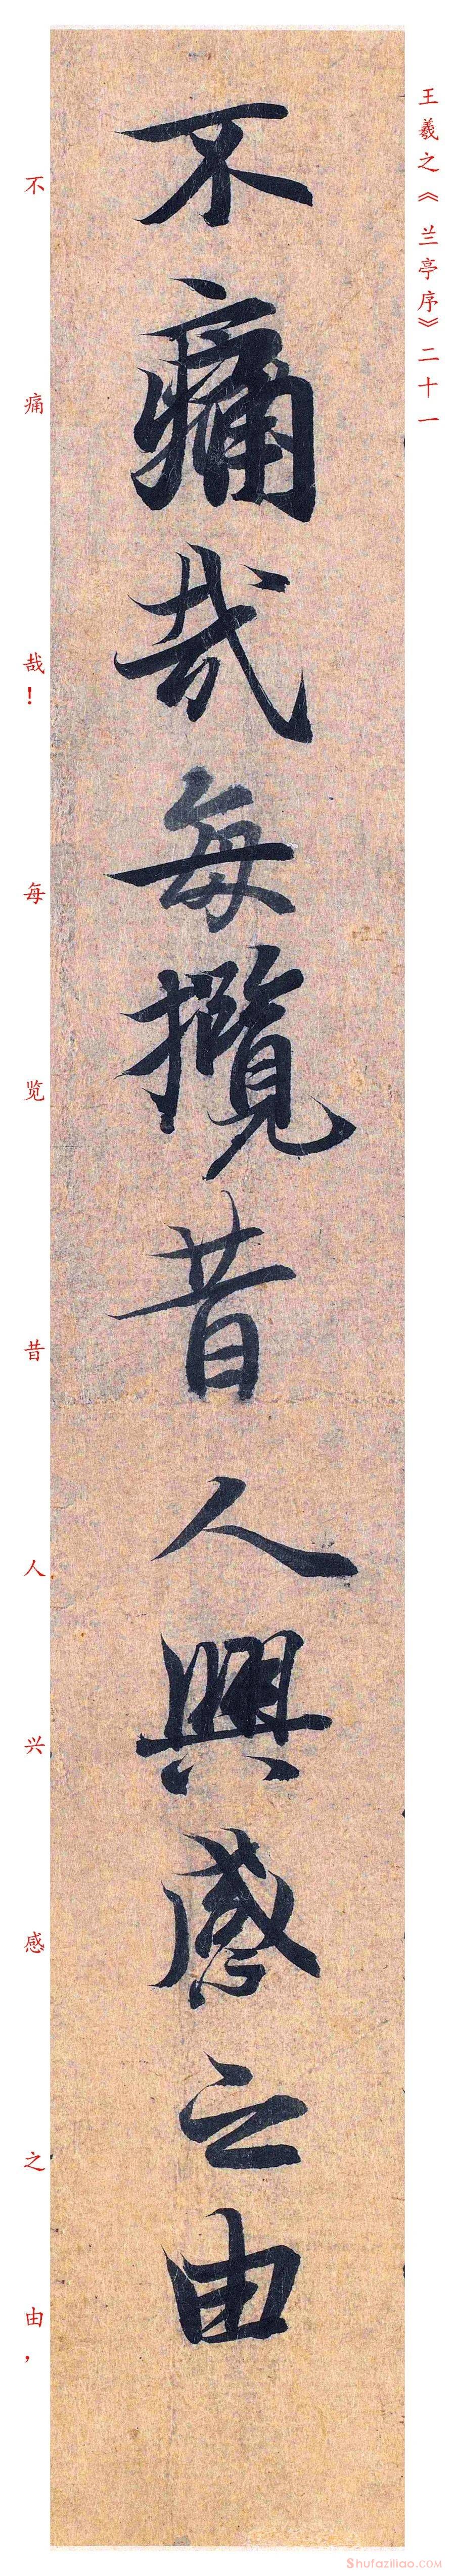 王羲之《兰亭序》二十一
不痛哉每攬昔人興感之由
不痛哉！每览昔人兴感之由，
Shufaziliao.COM